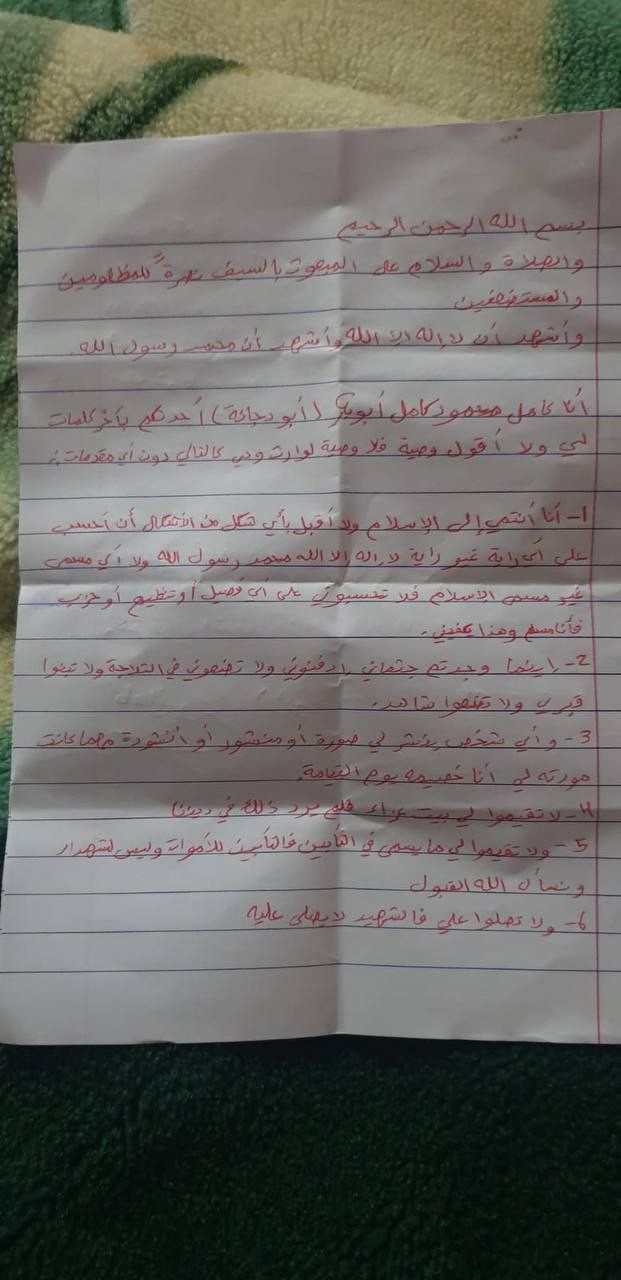 بسم الله الرحمن الرحيم
والصلاة والسلام على المبعوث بالسيف نصرةً للمظلومين
والمستضعفين
وأشهد أن لا إله إلا الله وأشهد أن محمد رسول الله
أنا كامل محمود كامل (أبو دجانة) أحدثكم بآخر كلمات
لي ولا أقول وصية فلا وصية لوارث وهي كالتالي دون أي مقدمات:
1- أنا أنتمي إلى الإسلام ولا أقبل بأي شكل من الأشكال أن أحسب
على أي راية غير راية لا إله إلا الله محمد رسول الله ولا أي مسمى
غير مسمى الإسلام فلا تحسبوني على أي فصيل أو تنظيم أو حزب
فأنا مسلم وهذا يكفيني.
2- أينما وجدتم جثماني إدفنوني ولا تضعوني في الثلاجة ولا تبنوا
قبري ولا تضعوا شاهد.
3- وأي شخص ينشر لي صورة أو منشور أو أنشودة مهما كانت
مورته لي أنا خصيمه يوم القيامة.
4- لا تقيموا لي بيت عزاء فلم يرد ذلك في ديننا
5- ولا تقيموا لي ما يسمى في التأبين فالتأبين للأموات وليس للشهداء
ونسأل الله القبول
6- ولا تصلوا علي فالشهيد لا يصلى عليه